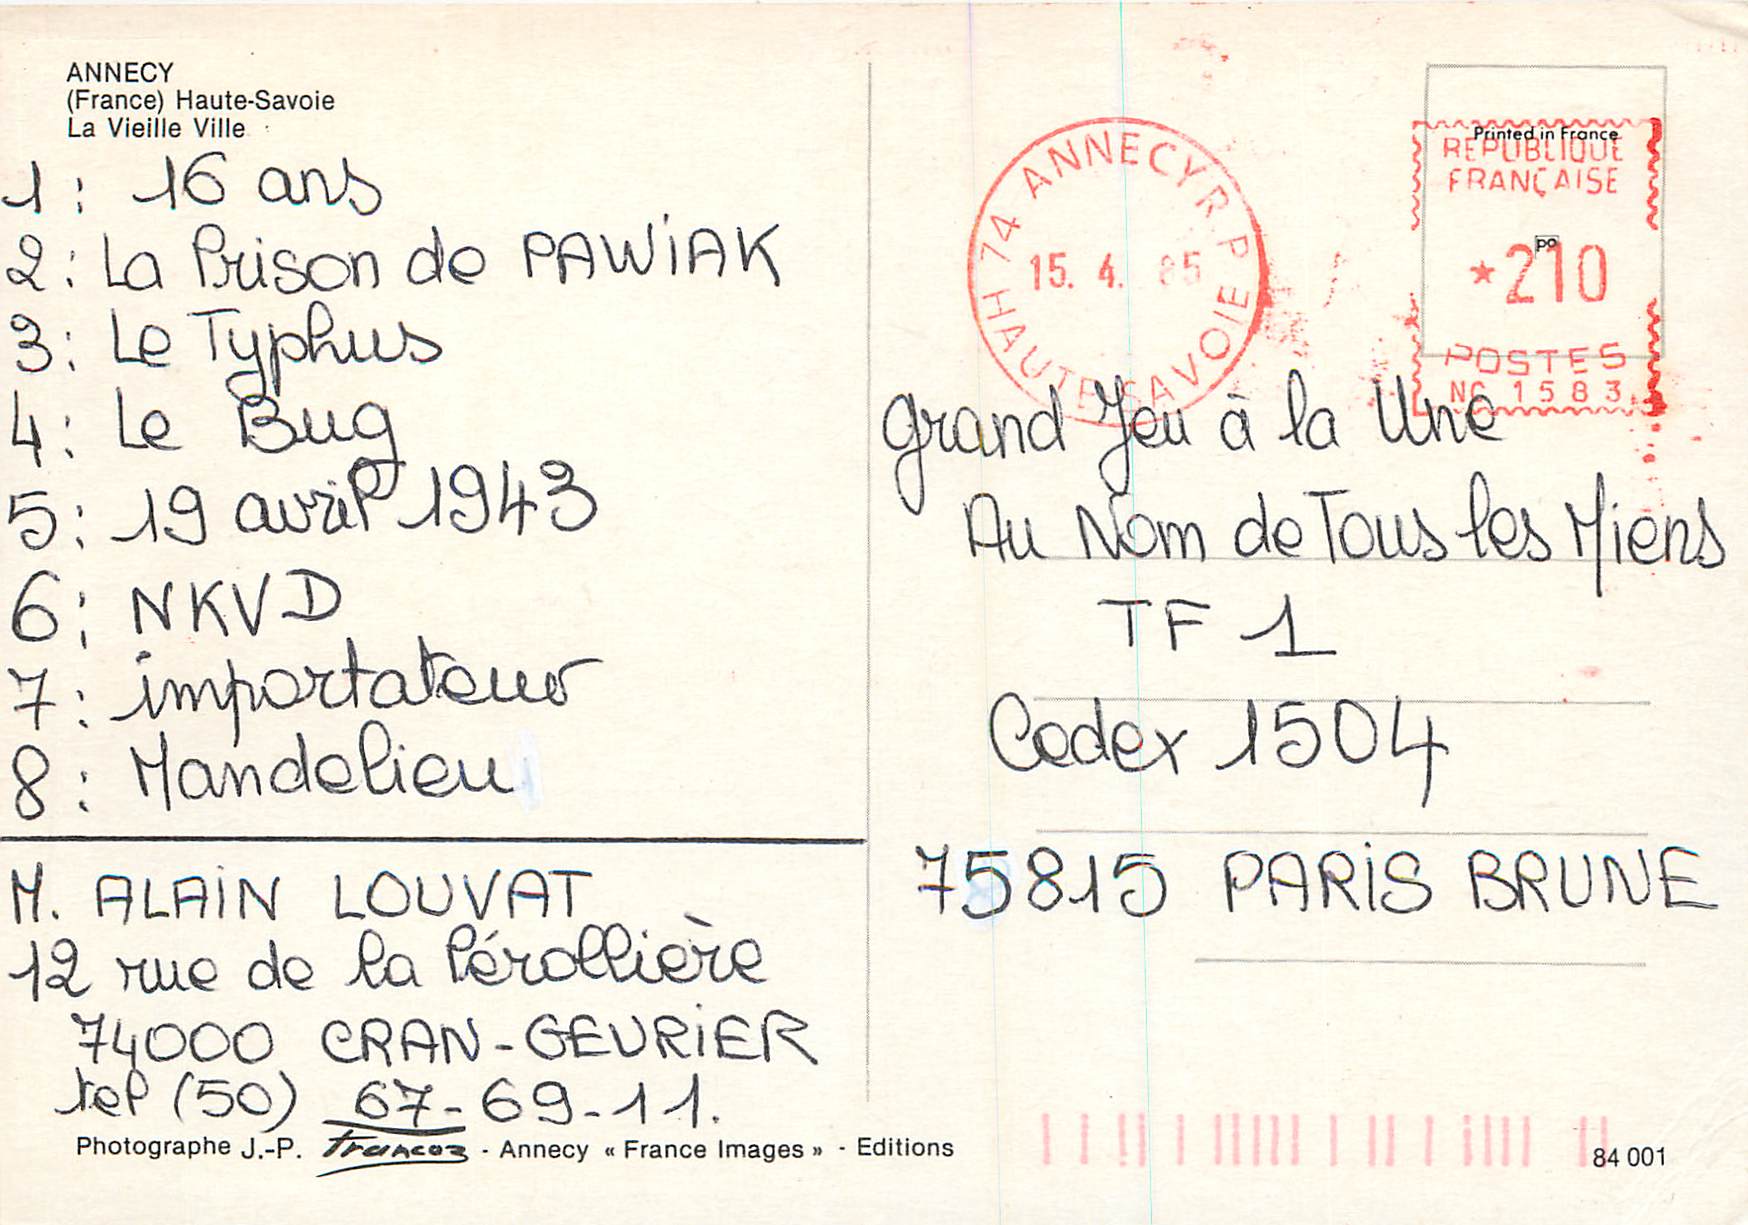 ANNECY
(France) Haute-Savoie
La Vieille Ville
1 : 16 ans
2 : La Prison de PAWiAK
3 : Le Typhus
4 : Le Bug
5 : 19 avril 1943
6 : NKVD
7 : importateur
8 : Mandelieu
M. ALAiN LOUVAT
12 rue de la Pérollière
74000 CRAN-GEVRiER
tel (50) 67-69-11.
Photographe J.-P. Francoz - Annecy « France Images » - Editions
74 ANNECY R P
15. 4. 85
HAUTE SAVOIE
Printed in France
REPUBLIQUE
FRANÇAISE
po
*210
POSTES
NC 1583
Grand Jeu à la Une
Au Nom de Tous les Miens
TF 1
Cedex 1504
75815 PARiS BRUNE
84 001